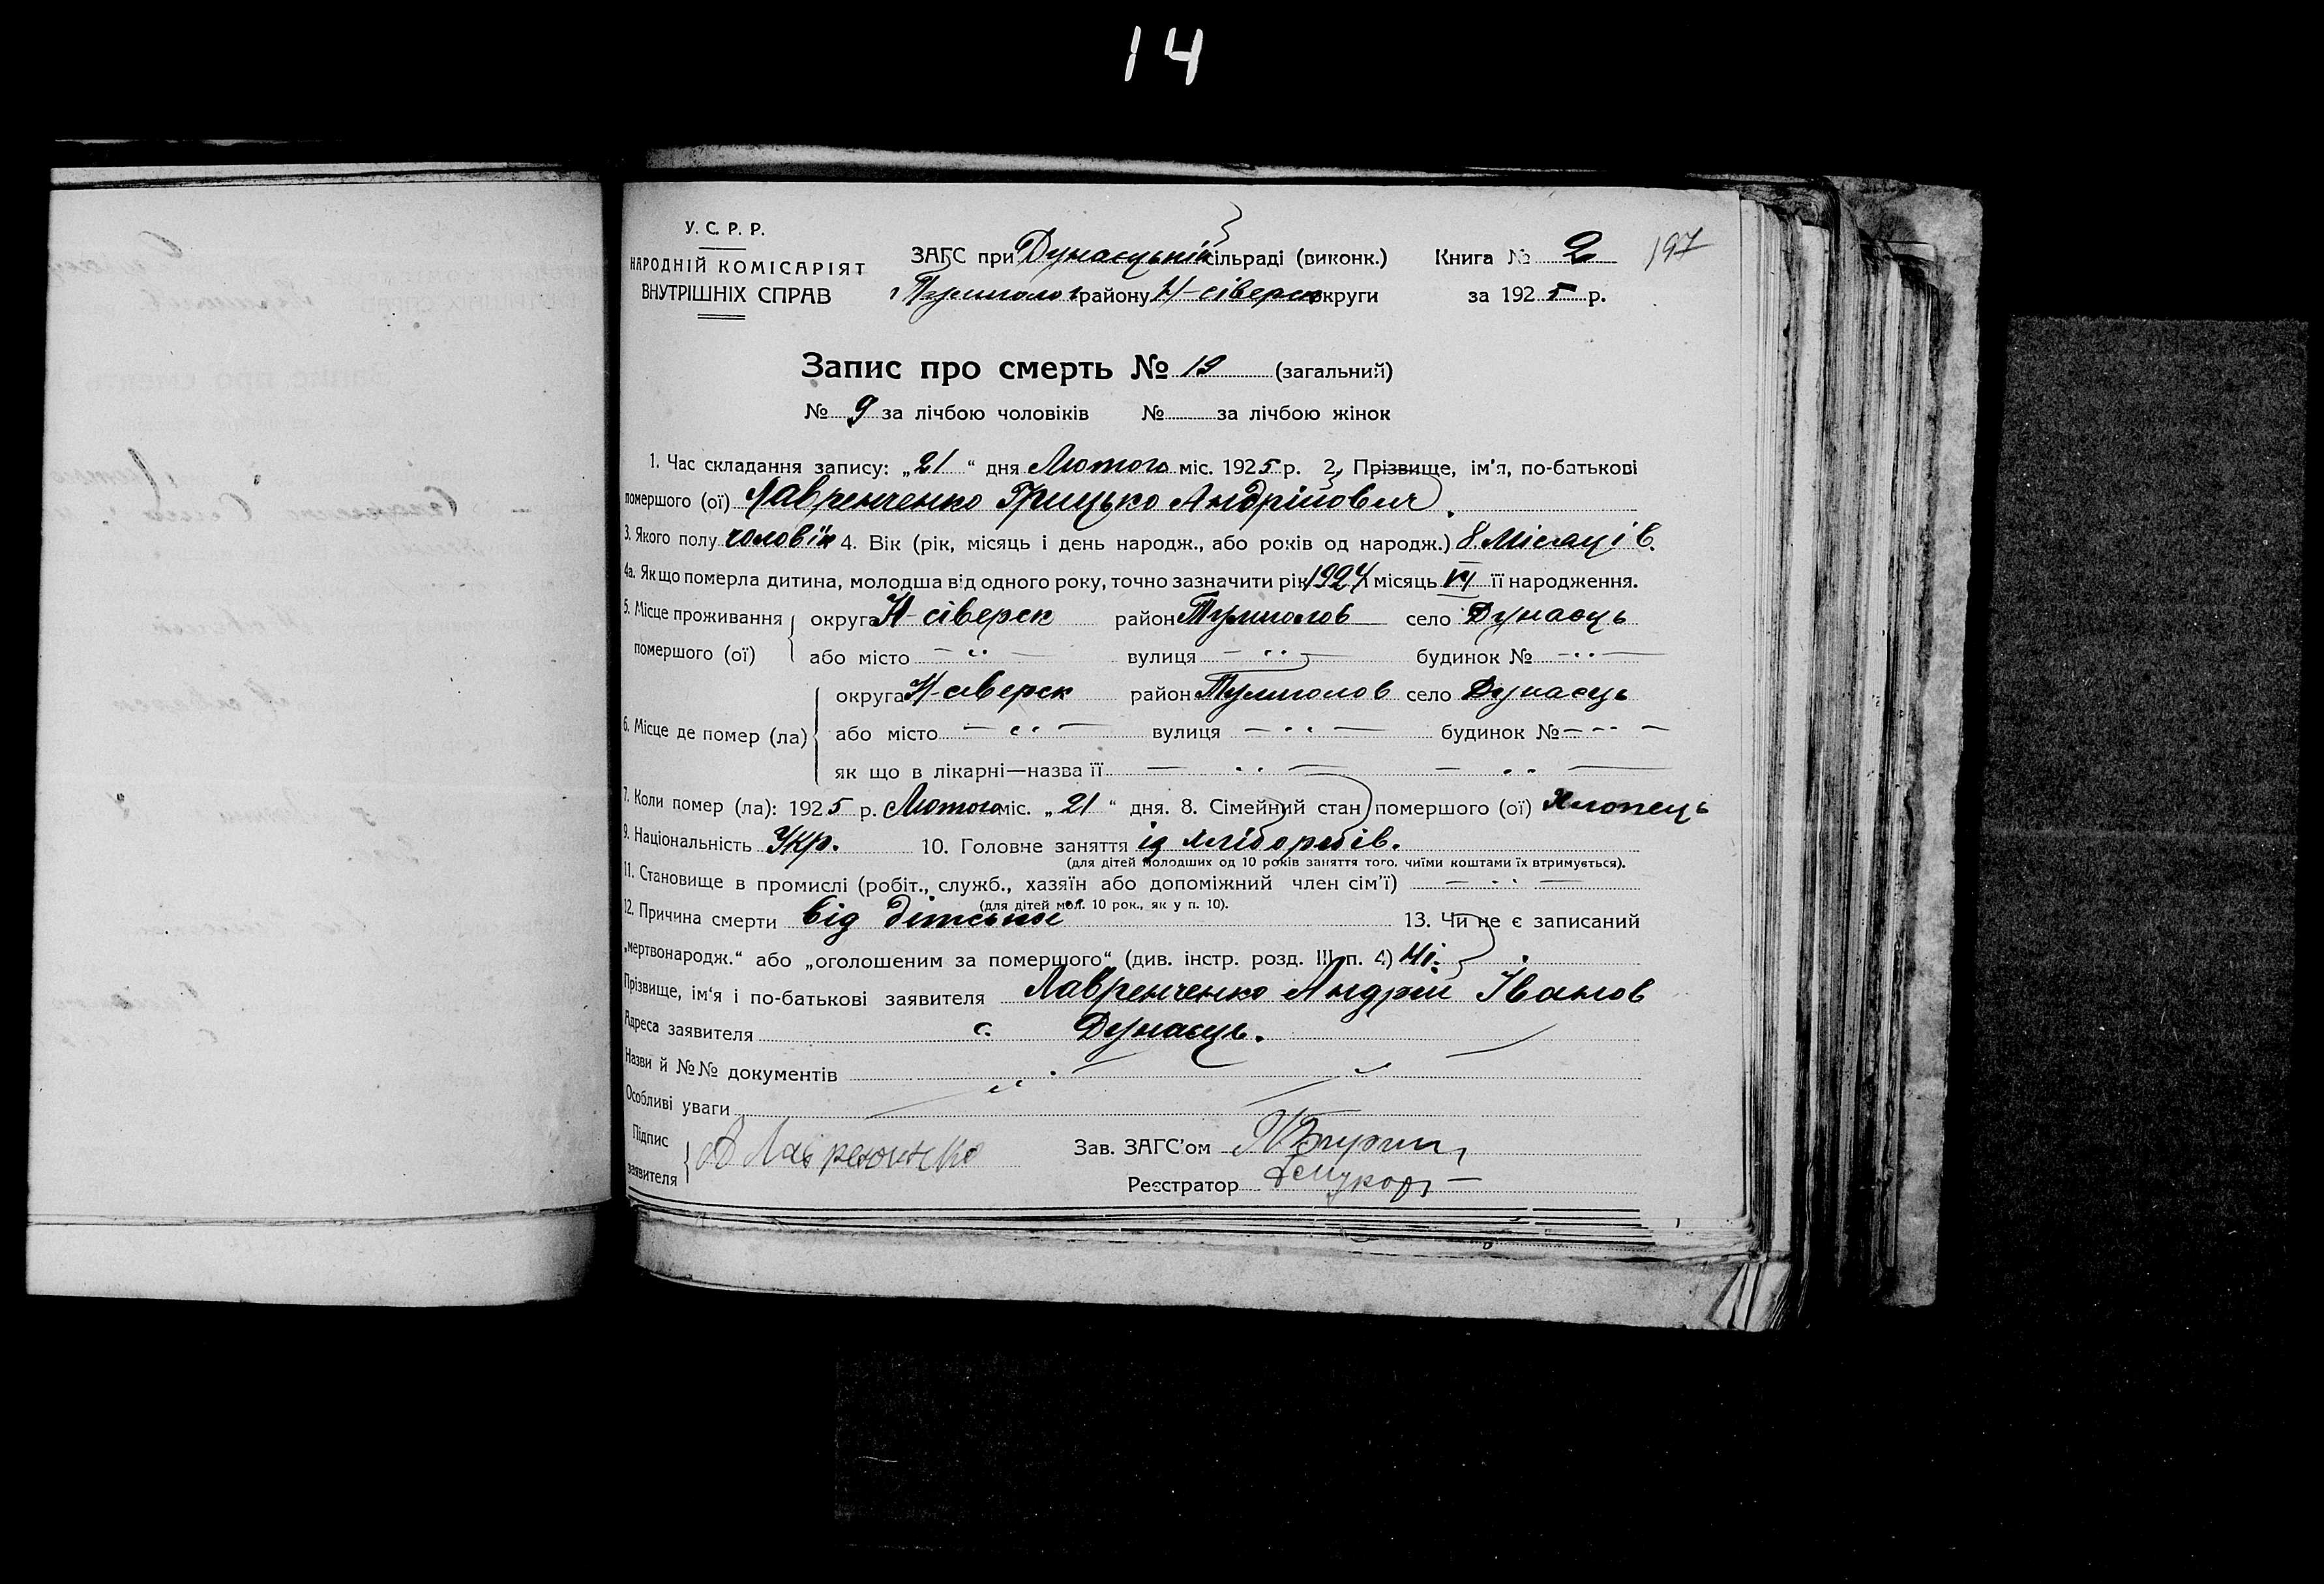 14
У. С. Р. Р.
НАРОДНІЙ КОМІСАРІЯТ
ВНУТРІШНІХ СПРАВ
ЗАГС при Дунаєцькій сільраді (виконк.) Книга № 2 197
Тулиголов району Н-сіверск округи за 1925 р.
Запис про смерть № 19 (загальний)
№ 9 за лічбою чоловіків № за лічбою жінок
1. Час складання запису: „21“ дня Лютого міс. 1925 р. 2. Прізвище, ім'я, по-батькові
помершого (ої) Лавренченко Грицько Андрійович.
3. Якого полу чоловік 4. Вік (рік, місяць і день народж., або років од народж.) 8 Місяців.
4а. Як що померла дитина, молодша від одного року, точно зазначити рік 1924 місяць VI її народження.
5. Місце проживання округа Н-сіверск район Тулиголов село Дунаєць
помершого (ої) або місто вулиця будинок №
округа Н-сіверск район Тулиголов село Дунаєць
6. Місце де помер (ла) або місто вулиця будинок №
як що в лікарні—назва її
7. Коли помер (ла): 1925 р. Лютого міс. „21“ дня. 8. Сімейний стан помершого (ої) Хлопець
9. Національність Укр. 10. Головне заняття із хліборобів.
(для дітей молодших од 10 років заняття того, чиїми коштами їх втримується).
11. Становище в промислі (робіт., служб., хазяїн або допоміжний член сім'ї)
(для дітей мол. 10 рок., як у п. 10).
12. Причина смерти від 13. Чи не є записаний
„мертвонародж.“ або „оголошеним за помершого“ (див. інстр. розд. III п. 4) Ні.
Прізвище, ім'я і по-батькові заявителя Лавренченко Андрій Іванов
Адреса заявителя с. Дунаєць.
Назви й №№ документів
Особливі уваги
Підпис
заявителя А Лавренченко Зав. ЗАГС'ом
Реєстратор